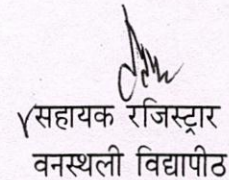 सहायक रजिस्ट्रार
वनस्थली विद्यापीठ